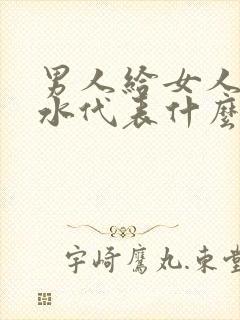 男人給女人
水代表什麼
宇崎鷹丸.束